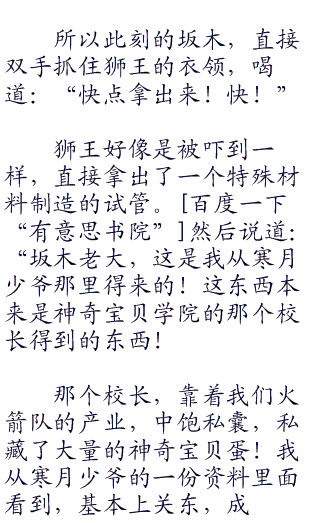 所以此刻的坂木，直接
双手抓住狮王的衣领，喝
道：“快点拿出来！快！”
狮王好像是被吓到一
样，直接拿出了一个特殊材
料制造的试管。[百度一下
“有意思书院”]然后说道：
“坂木老大，这是我从寒月
少爷那里得来的！这东西本
来是神奇宝贝学院的那个校
长得到的东西！
那个校长，靠着我们火
箭队的产业，中饱私囊，私
藏了大量的神奇宝贝蛋！我
从寒月少爷的一份资料里面
看到，基本上关东，成